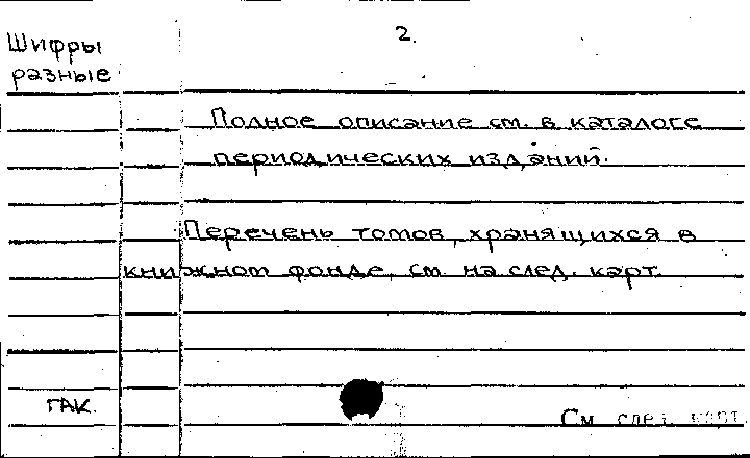 2.
Шифры
разные
Полное описание см. в каталоге
периодических изданий.
Перечень томов, хранящихся в
книжном фонде, см. на след. карт.
ГАК.
См след карт